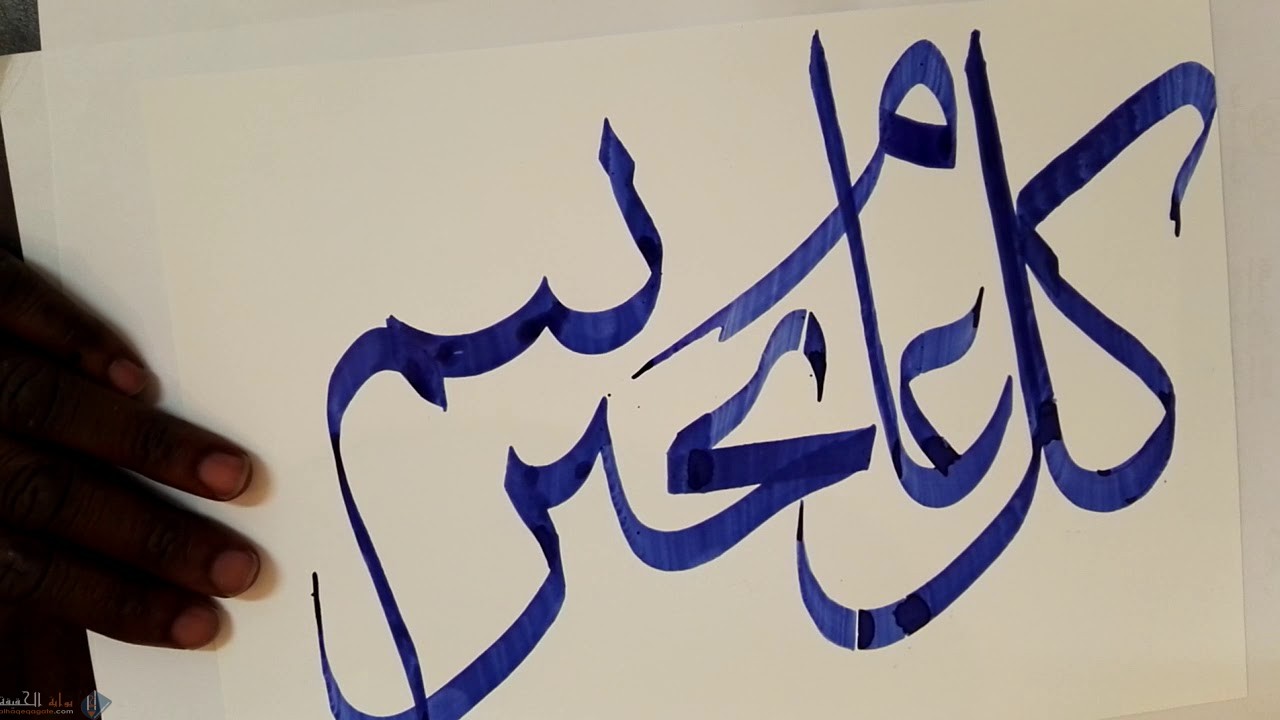 كل عام نتم بخير
بوابة الحقيقة
alhaqeqagate.com